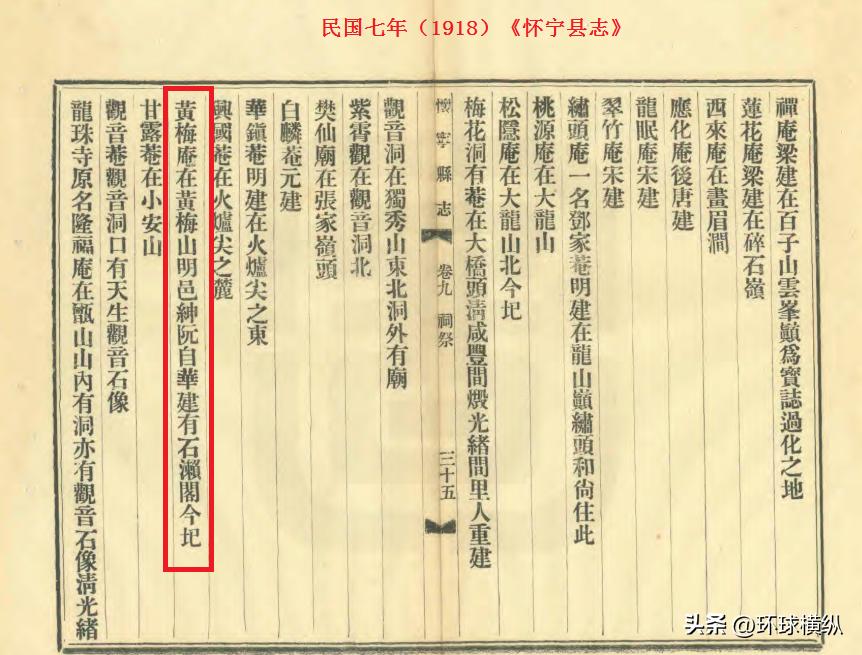 民国七年（1918）《怀宁县志》
禪庵梁建在百子山雲峯巓爲寶誌過化之地
蓮花庵梁建在碎石嶺
西來庵在畫眉澗
應化庵後唐建
龍眠庵宋建
翠竹庵宋建
繡頭庵一名鄧家菴明建在龍山巓繡頭和尙住此
桃源庵在大龍山
松隱庵在大龍山北今圯
梅花洞有菴在大橋頭淸咸豐間燬光緖間里人重建
懷寧縣志 卷九 祠祭 三十五
觀音洞在獨秀山東北洞外有廟
紫霄觀在觀音洞北
樊仙廟在張家嶺頭
白麟菴元建
華鎭菴明建在火爐尖之東
興國菴在火爐尖之麓
黃梅庵在黃梅山明邑紳阮自華建有石瀨閣今圯
甘露菴在小安山
觀音菴觀音洞口有天生觀音石像
龍珠寺原名隆福庵在甑山山內有洞亦有觀音石像淸光緖
头条 @环球横纵